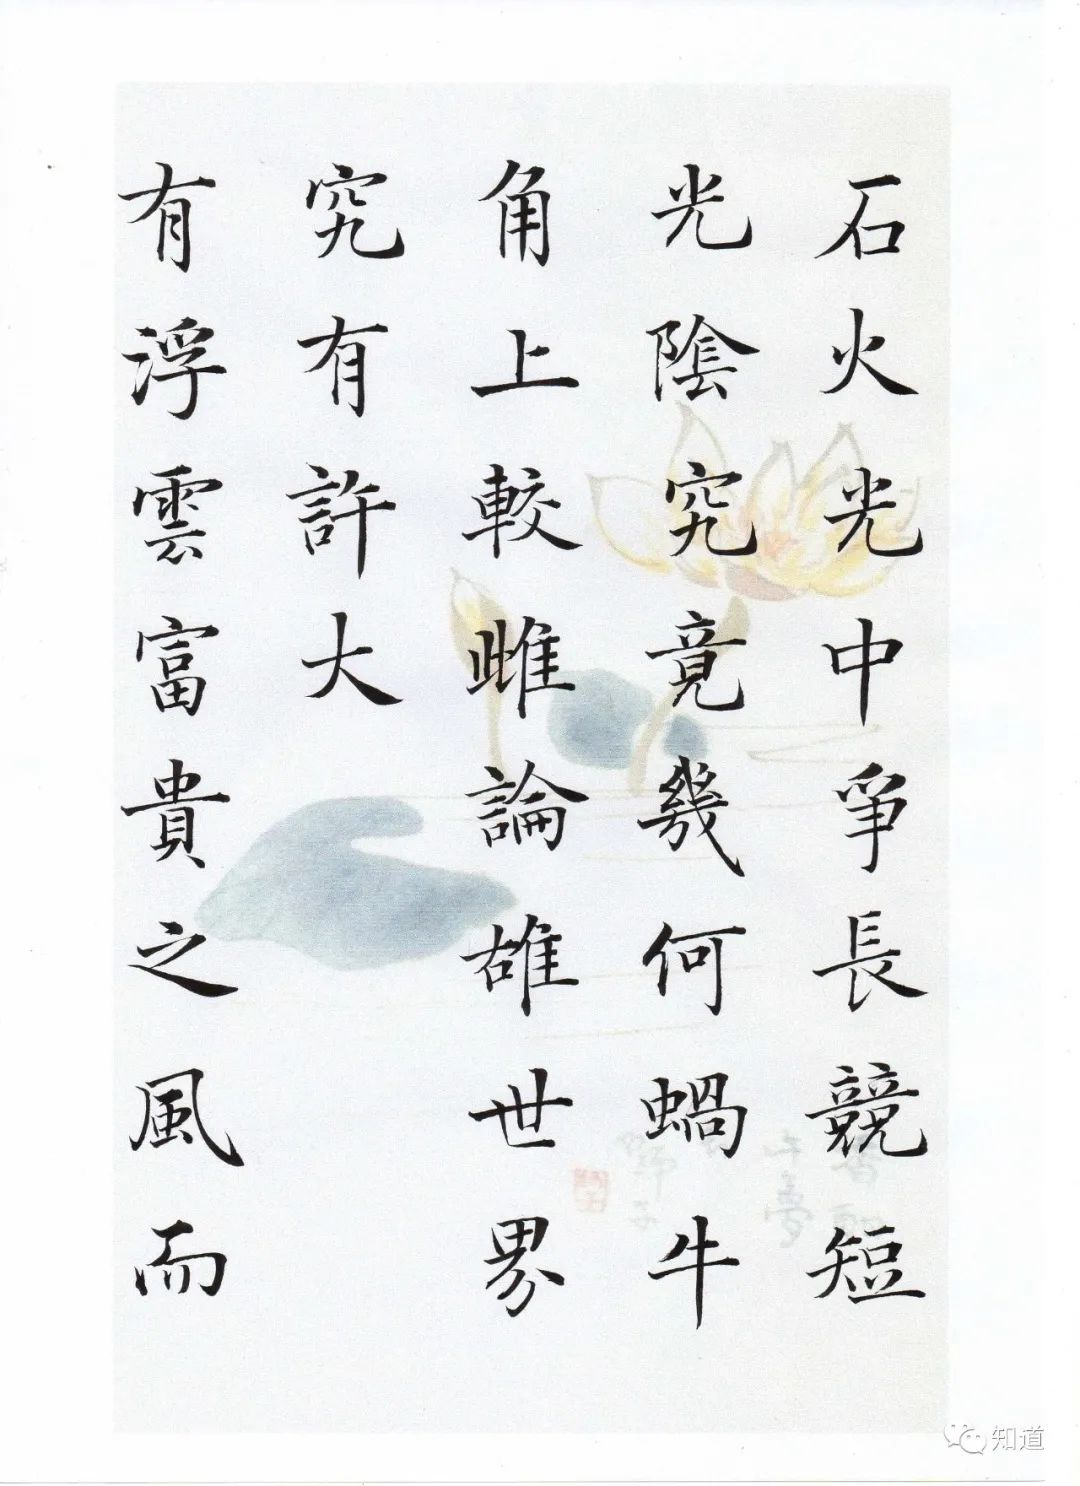 石火光中爭長競短
光陰究竟幾何蝸牛
角上較雌論雄世界
究有許大
有浮雲富貴之風而
知道